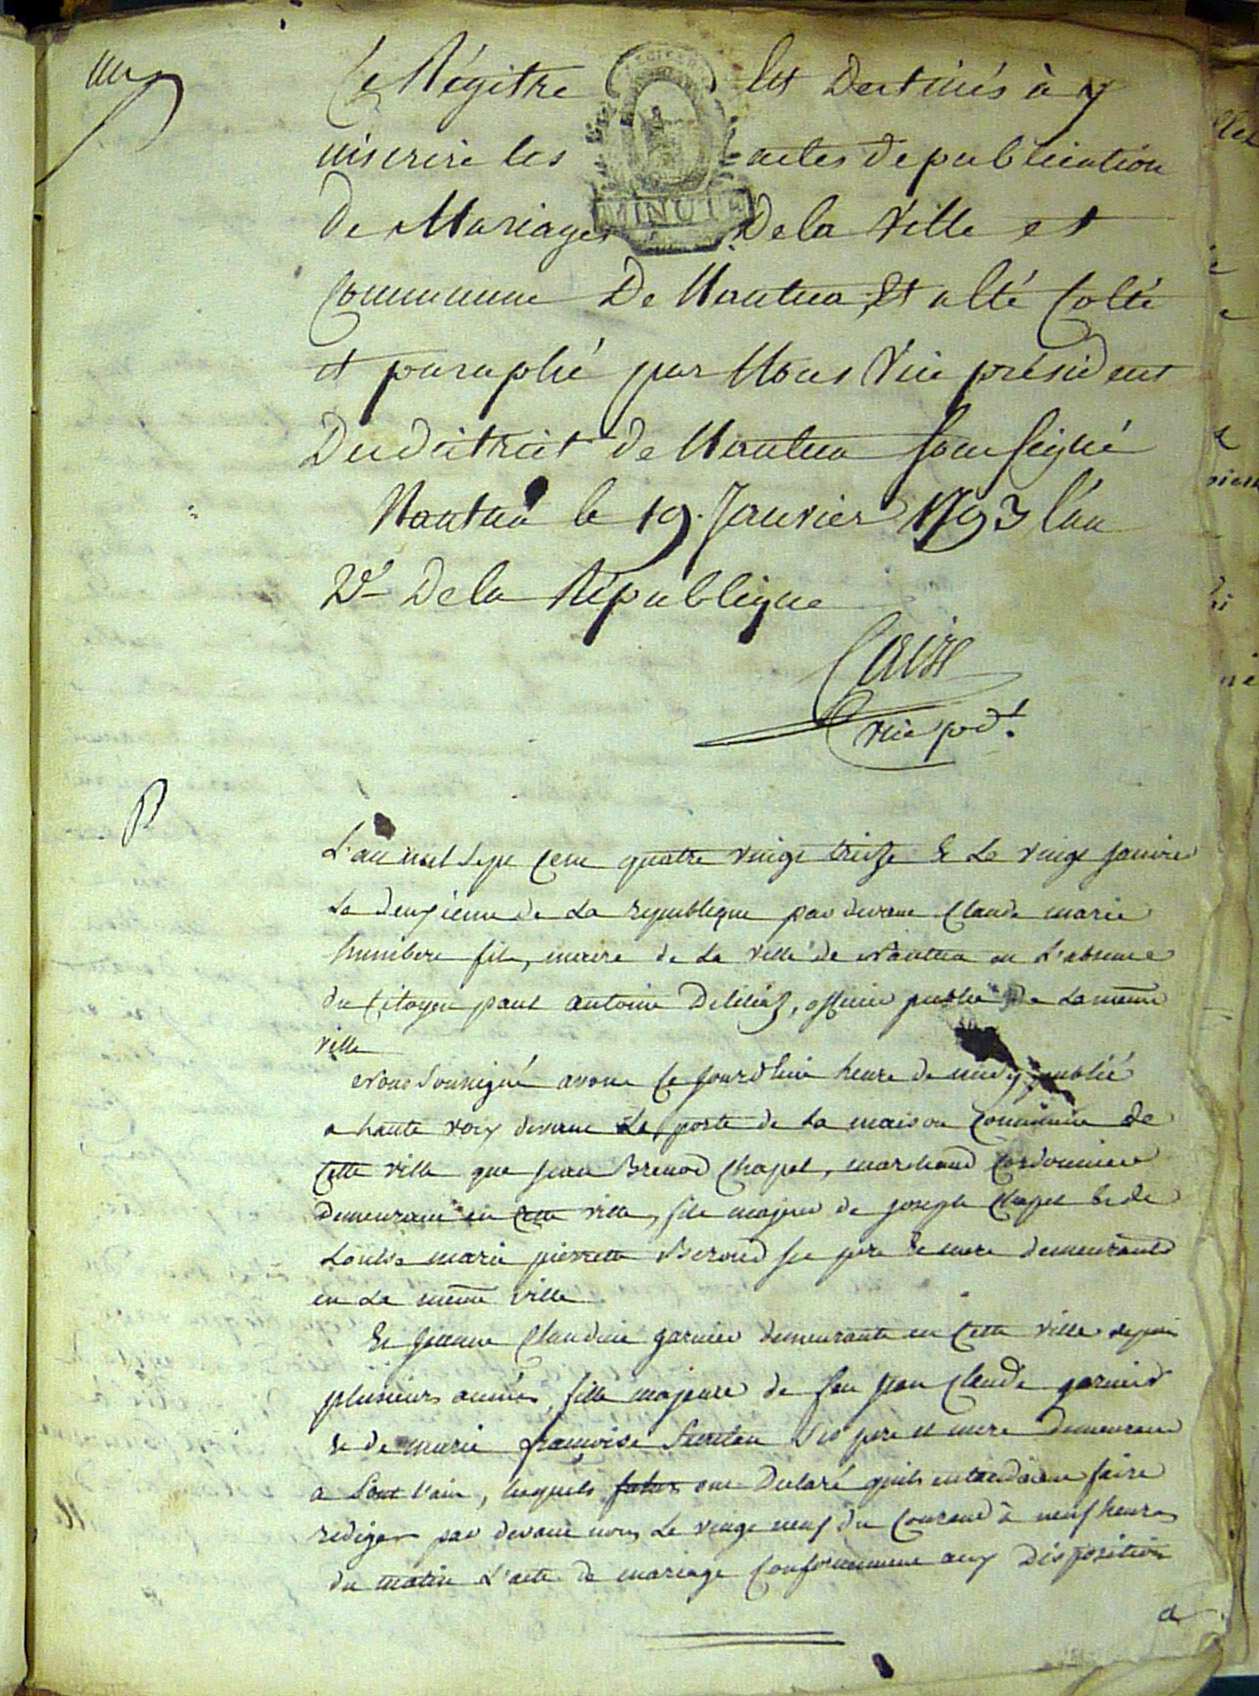 Ce Régitre Est Destinés à y
inscrire les actes de publication
De Mariages De la Ville et
MINUTE
Commune De Nantua, Et a été Cotté
et paraphé par Nous Vice président
Du district de Nantua Soussigné
Nantua le 19. Janvier 1793 l'an
2.d De la République
vice pdt.
L'an mil Sept Cent quatre vingt treize & Le vingt Janvier
La deuxieme de La republique par devant Claude marie
humbert fils, maire de La ville de Nantua en L'absence
du Citoyen paul antoine Deliliaz, officier public De La meme
ville
Nous Soussigné avons Ce Jourdhui heure de midy publié
a haute voix devant La porte de La maison Commune de
Cette ville que Jean Brenod Chapel, marchand Cordonnier
Demeurant en Cette ville, fils majeur de Joseph Chapel & de
Louise marie pierrette Beroud Ses pere & mere demeurants
en La meme ville
Et Jeanne Claudine garnier demeurante en Cette ville depuis
plusieurs années, fille majeure de feu Jean Claude garnier
& de marie françoise Ses pere et mere demeurant
a , lesquels futurs ont Declaré quils entendoient faire
rediger par devant nous Le vingt neuf du Courant à neuf heures
du matin L'acte de mariage Conformement aux Disposition
a